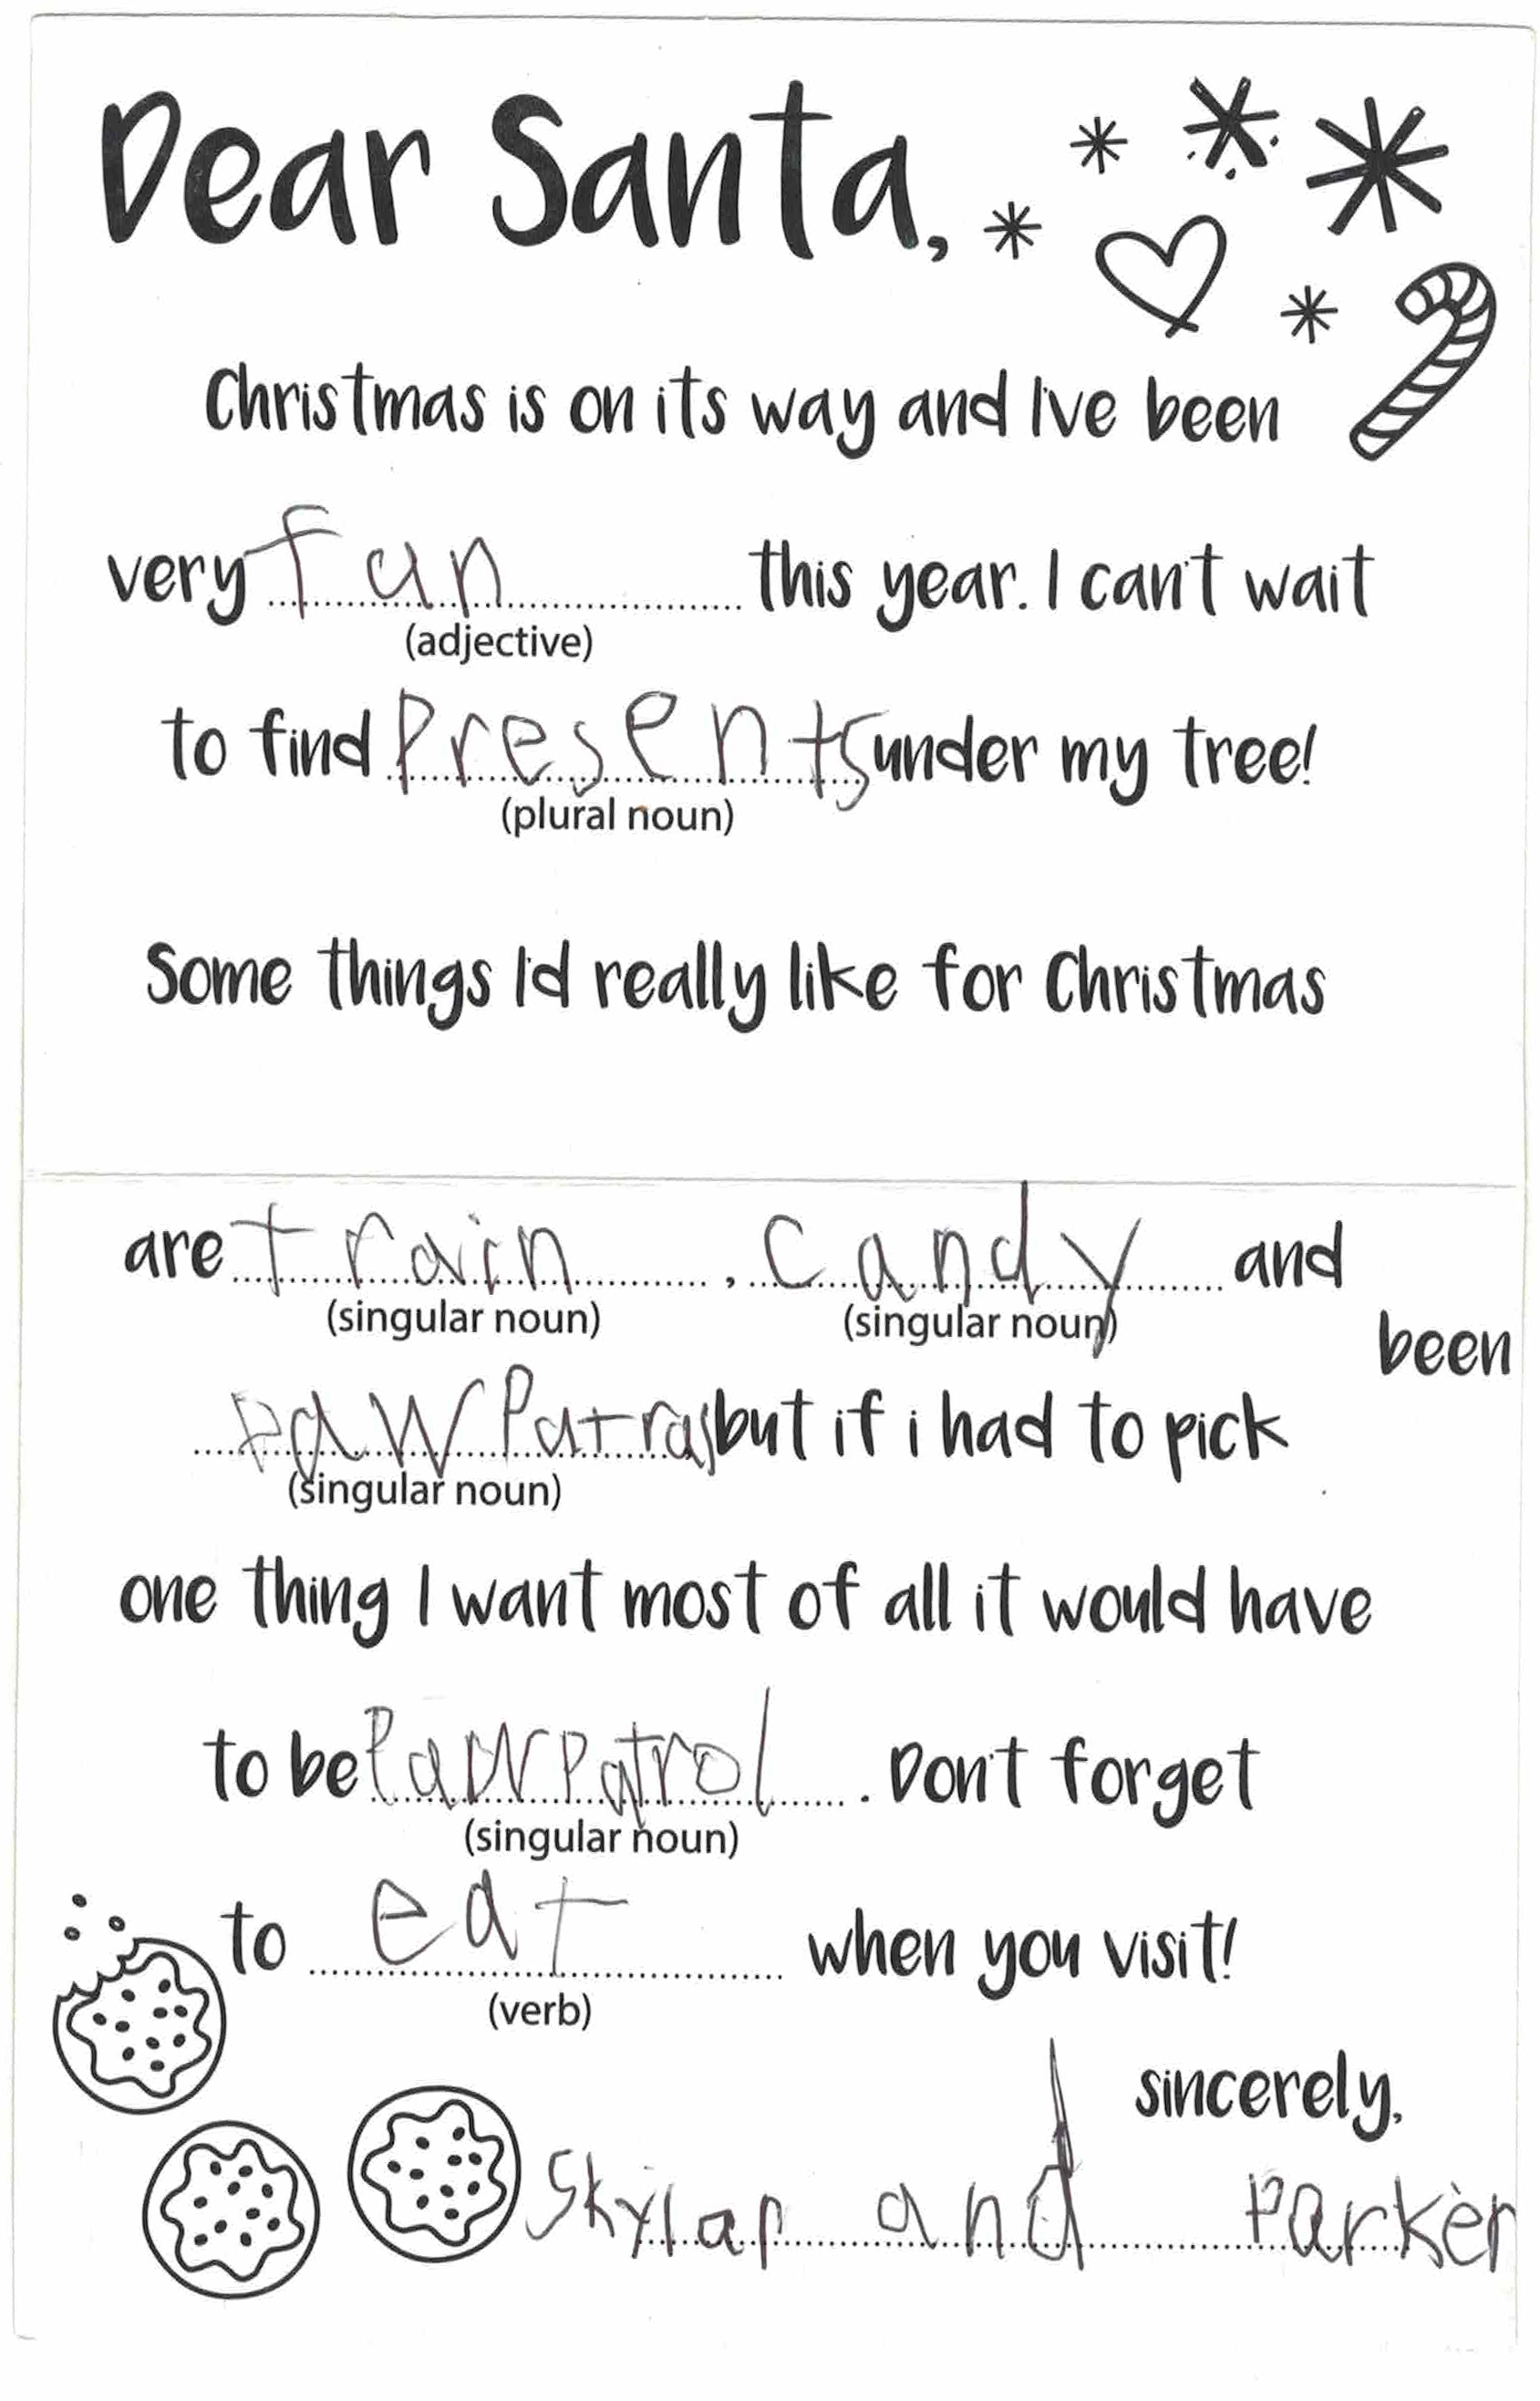 Dear Santa,
Christmas is on its way and I've been
very fun this year. I can't wait
(adjective)
to find Presents under my tree!
(plural noun)
Some things I'd really like for Christmas
are train, candy and
(singular noun) (singular noun)
been
paw Patral but if i had to pick
(singular noun)
one thing I want most of all it would have
to be Paw Patrol. Don't forget
(singular noun)
to eat when you visit!
(verb)
sincerely,
Skylar and Parker